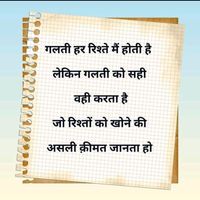 गलती हर रिश्ते मैं होती है
लेकिन गलती को सही
वही करता है
जो रिश्तों को खोने की
असली क़ीमत जानता हो